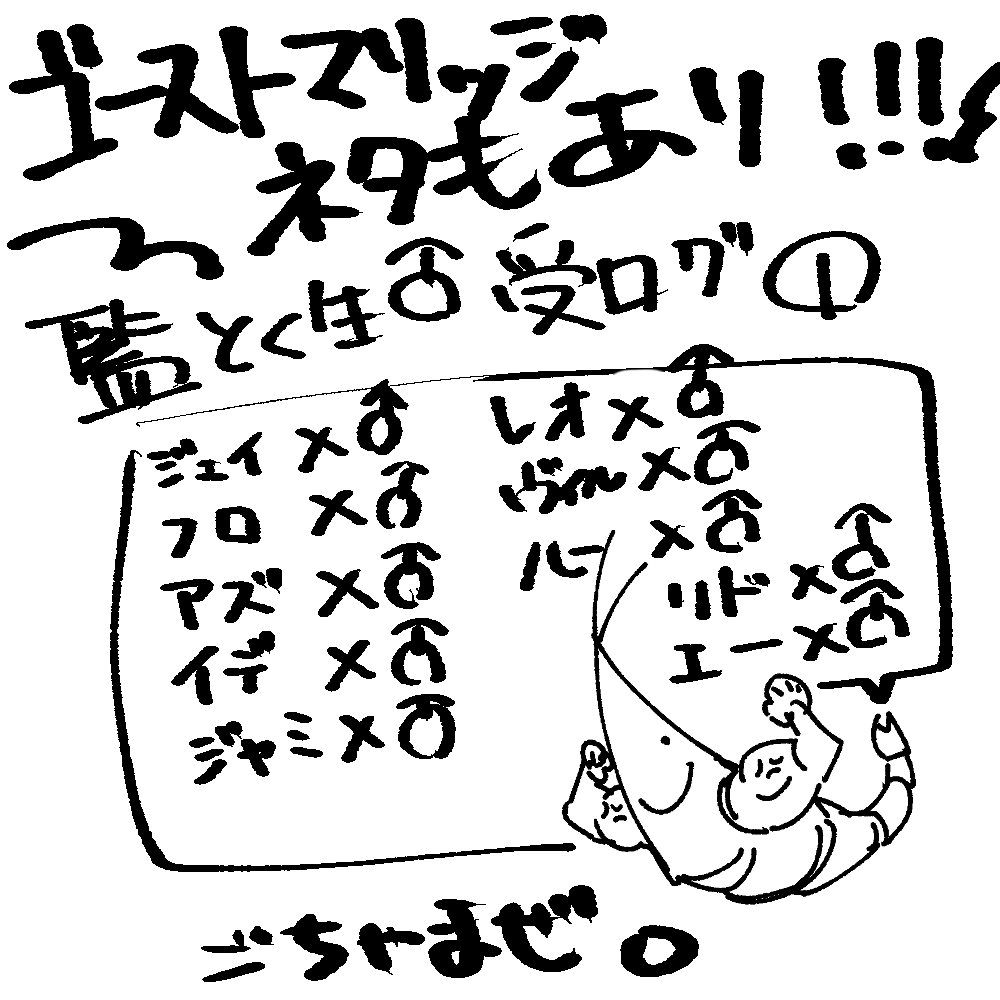 ゴーストマリッジ
ネタもあり!!!!
〜監とく生♂受ログ①
ジェイ×♂
フロ×♂
アズ×♂
イデ×♂
ジャミ×♂
レオ×♂
ヴィル×♂
ルー×♂
リド×♂
エー×♂
ごちゃまぜ。